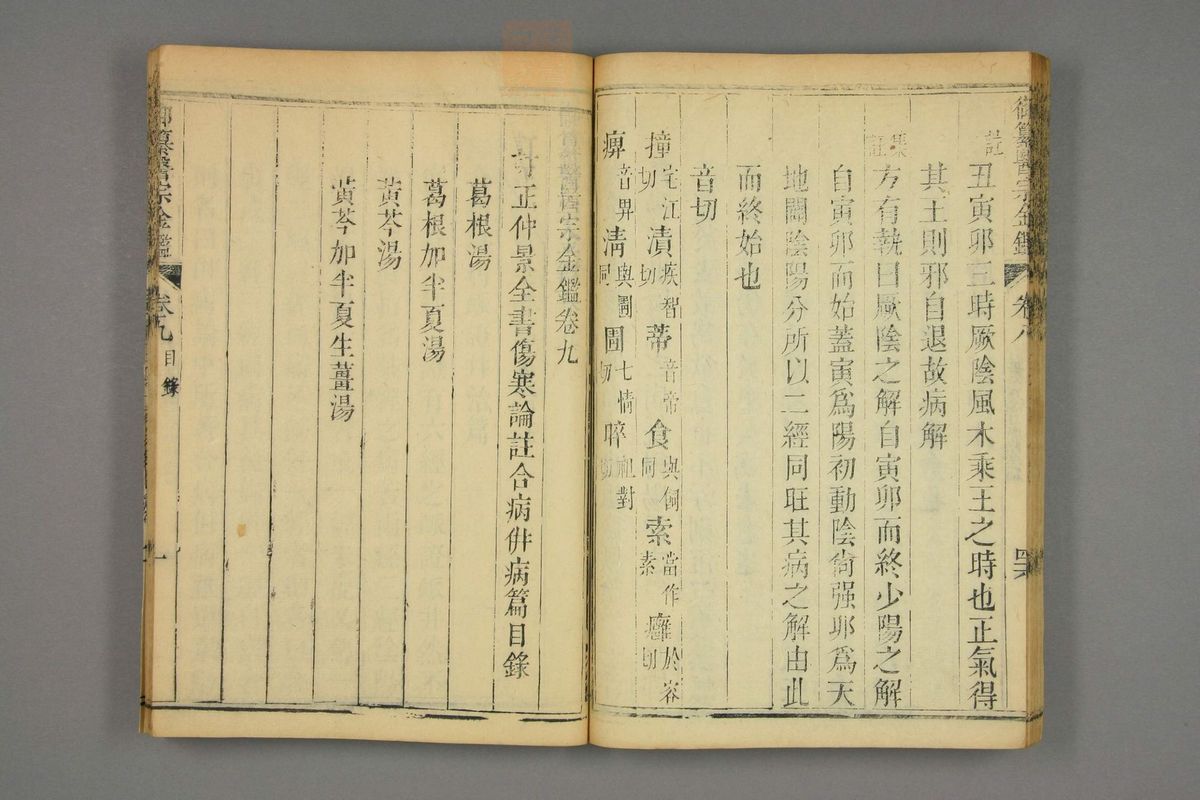 御纂醫宗金鑑 卷八
註 丑寅卯三時厥陰風木乘王之時也正氣得
其王則邪自退故病解
集註 方有執曰厥陰之解自寅卯而終少陽之解
自寅卯而始蓋寅爲陽初動陰尙强卯爲天
地闢陰陽分所以二經同旺其病之解由此
而終始也
音切
撞宅江切 漬疾智切 蒂音帝 食與飼同 索當作素 癰於容切
痹音畀 淸與圊同 圊七情切 啐祖對切
御纂醫宗金鑑卷九
訂正仲景全書傷寒論註合病倂病篇目錄
葛根湯
葛根加半夏湯
黃芩湯
黃芩加半夏生薑湯
御纂醫宗金鑑 卷九 目錄 一